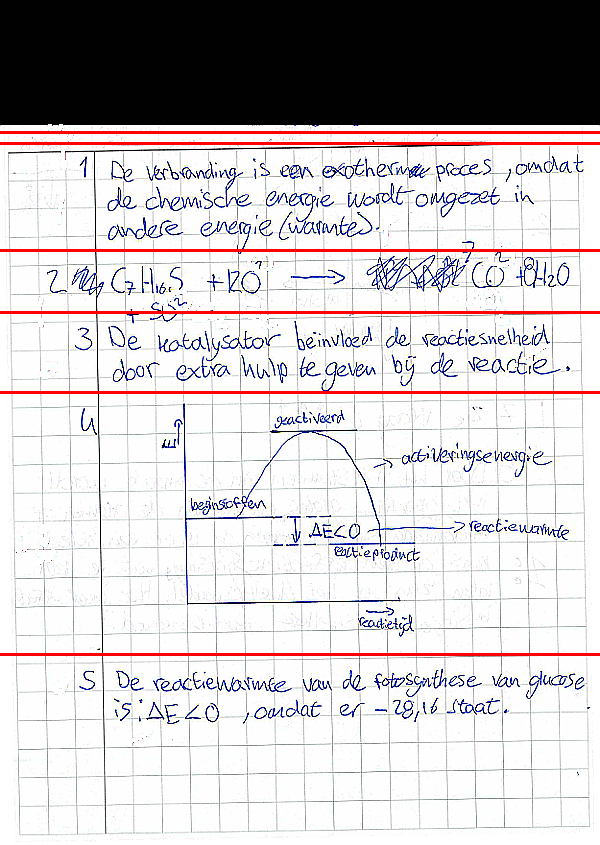 1 De verbranding is een exotherm proces, omdat
de chemische energie wordt omgezet in
andere energie (warmte).
2 C7H16S + 12O² → 7 CO² + 8H2O
+ SO²
3 De katalysator beïnvloed de reactiesnelheid
door extra hulp te geven bij de reactie.
4
geactiveerd
E↑
→ activeringsenergie
beginstoffen
↓ ΔE<0 → reactiewarmte
reactieproduct
→
reactietijd
5 De reactiewarmte van de fotosynthese van glucose
is: ΔE<0, omdat er -28,16 staat.